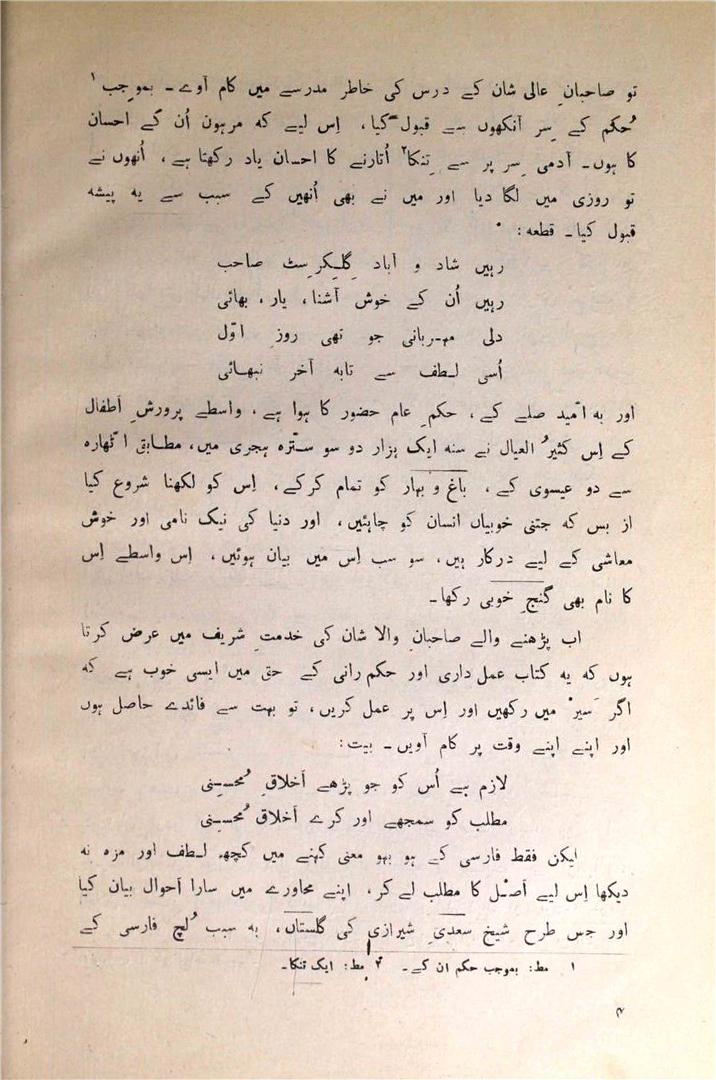 تو صاحبانِ عالی شان کے درس کی خاطر مدرسے میں کام آوے ۔ بموجب۱
حُکم کے سِر آنکھوں سے قبول کیا، اِس لیے کہ مرہون اُن کے احسان
کا ہوں ۔ آدمی سِر پر سے تِنکا۲ اُتارنے کا احسان یاد رکھتا ہے، اُنھوں نے
تو روزی میں لگا دیا اور میں نے بھی اُنھیں کے سبب سے یہ پیشہ
قبول کیا ۔ قطعہ :
رہیں شاد و آباد گِلکِرسِٹ صاحب
رہیں اُن کے خوش آشنا، یار، بھائی
دلی مہربانی جو تھی روزِ اوّل
اُسی لطف سے تابہ آخر نبھائی
اور بہ اُمید صلے کے، حکمِ عام حضور کا ہوا ہے، واسطے پرورشِ اَطفال
کے اِس کثیرُ العیال نے سنہ ایک ہزار دو سو سترہ ہجری میں، مطابق اٹھارہ
سے دو عیسوی کے، باغ و بہار کو تمام کرکے، اِس کو لکھنا شروع کیا
از بس کہ جتنی خوبیاں انسان کو چاہئیں، اور دنیا کی نیک نامی اور خوش
معاشی کے لیے درکار ہیں، سو سب اِس میں بیان ہوئیں، اِس واسطے اِس
کا نام بھی گنجِ خوبی رکھا ۔
اب پڑھنے والے صاحبانِ والا شان کی خدمتِ شریف میں عرض کرتا
ہوں کہ یہ کتاب عمل داری اور حکم رانی کے حق میں ایسی خوب ہے کہ
اگر سَیر میں رکھیں اور اِس پر عمل کریں، تو بہت سے فائدے حاصل ہوں
اور اپنے اپنے وقت پر کام آویں ۔ بیت :
لازم ہے اُس کو جو پڑھے اَخلاقِ مُحسِنی
مطلب کو سمجھے اور کرے اَخلاق مُحسِنی
لیکن فقط فارسی کے ہو بہو معنی کہنے میں کچھ لطف اور مزہ نہ
دیکھا اِس لیے اَصل کا مطلب لے کر، اپنے محاورے میں سارا اَحوال بیان کیا
اور جس طرح شیخ سعدیِ شیرازی کی گلستاں، بہ سبب لُچ فارسی کے
۱ مط: بموجب حکم ان کے ۔ ۲ مط: ایک تنکا ۔
۴